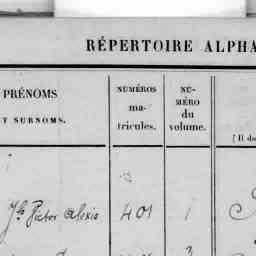 RÉPERTOIRE ALPHA
PRÉNOMS
ET SURNOMS.
NUMÉROS
ma-
tricules.
NU-
MÉRO
du
volume.
[ Il do
Victor Alexis 401 1